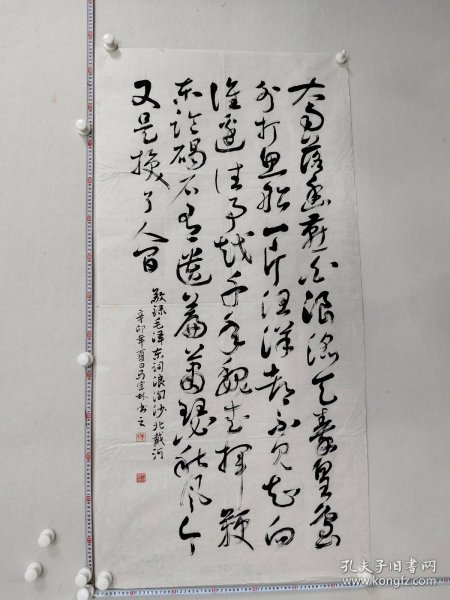 大雨落幽燕白浪滔天秦皇岛
外打鱼船一片汪洋都不见知向
谁边往事越千年魏武挥鞭
东临碣石有遗篇萧瑟秋风今
又是换了人间
敬录毛泽东词浪淘沙北戴河
辛卯年夏日马宝林书之
孔夫子旧书网
www.kongfz.com